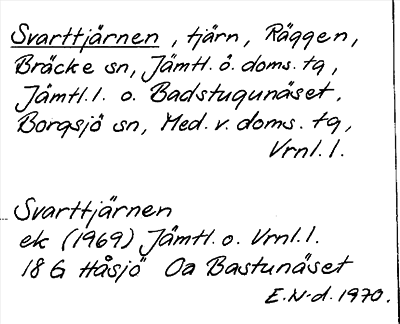 Svarttjärnen, tjärn, Räggen,
Bräcke sn, Jämtl. ö. doms. tg,
Jämtl. l. o. Badstugunäset,
Borgsjö sn, Med. v. doms. tg,
Vrnl. l.
Svarttjärnen
ek (1969) Jämtl. o. Vrnl. l.
18 G Håsjö Oa Bastunäset
E.N-d. 1970.